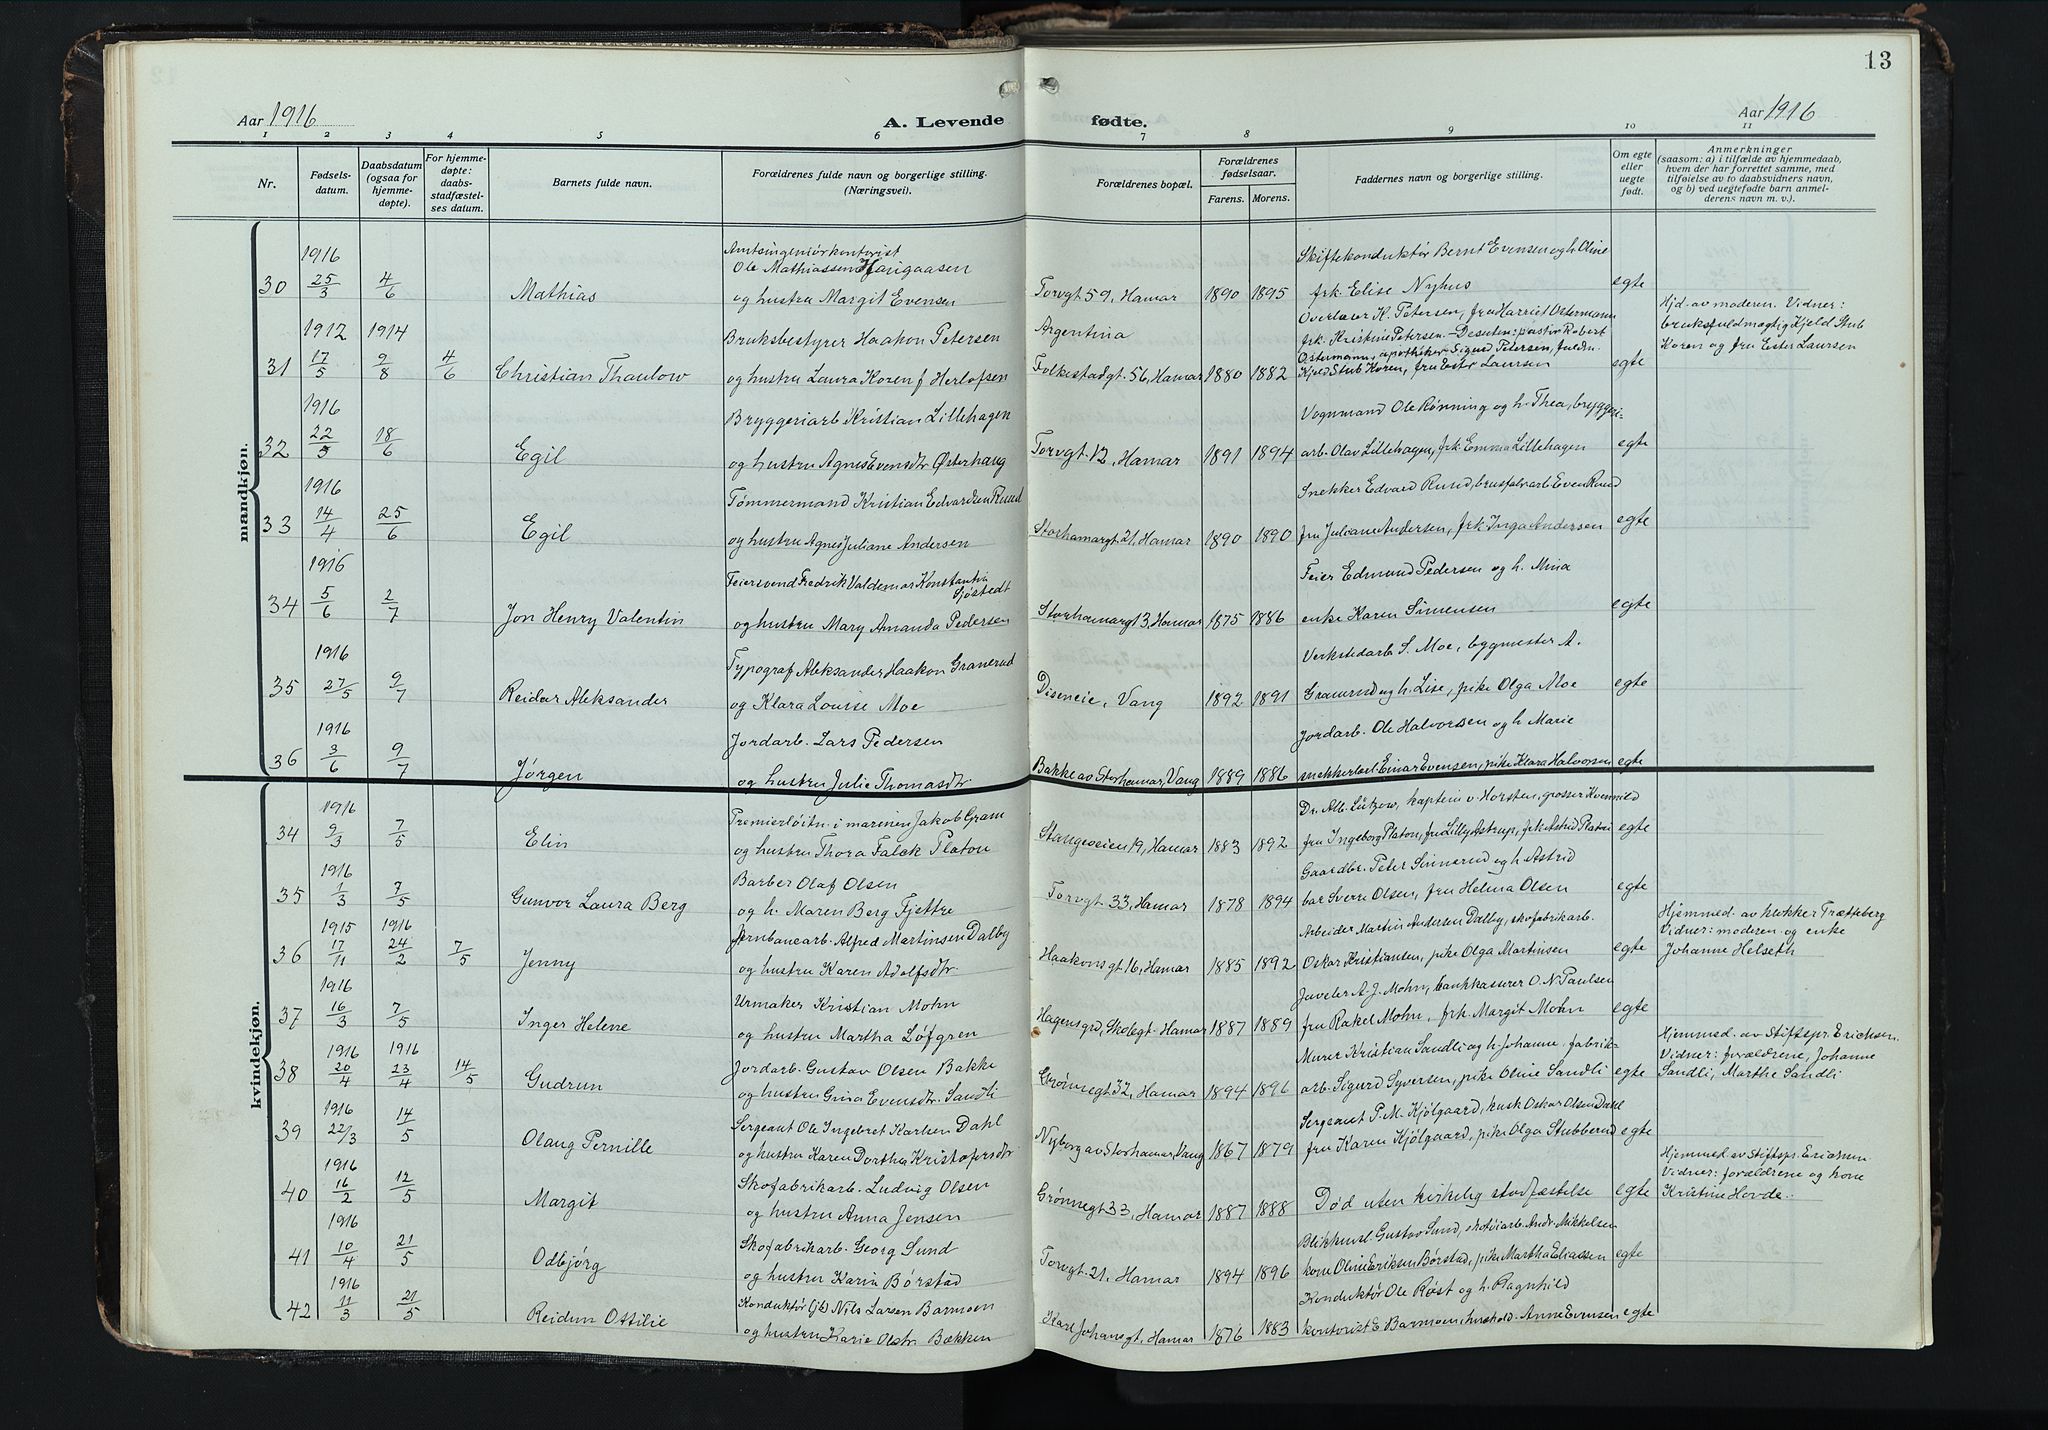 13
Aar 1916
A. Levende fødte.
Aar 1916
1 2 3 4 5 6 7 8 9 10 11
Nr.
Fødsels-
datum.
Daabsdatum
(ogsaa for
hjemme-
døpte).
For hjemme-
døpte:
daabs-
stadfæstel-
ses datum.
Barnets fulde navn.
Forældrenes fulde navn og borgerlige stilling.
(Næringsvei).
Forældrenes bopæl.
Forældrenes
fødselsaar.
Farens. Morens.
Faddernes navn og borgerlige stilling.
Om egte
eller
uegte
født.
Anmerkninger
(saasom: a) i tilfælde av hjemmedaab,
hvem der har forrettet samme, med
tilføielse av to daabsvidners navn,
og b) ved uegtefødte barn anmel-
derens navn m. v.).
mandkjøn.
1916 Amtsingeniørkontorist Skiftekonduktør Bernt Evensen og h. Oline
Ole Mathiassen Haugaasen
30 25/3 4/6 Mathias og hustru Margit Evensen Torvgt 59, Hamar 1890 1895 frk. Elise Nyhus egte
1912 1914 Bruksbestyrer Haakon Petersen Argentina Overlærer K. Petersen, fru Harriet Ostermann Hjd. av moderen. Vidner:
frk. Kristine Petersen. Desuten: pastor Robert bruksfuldmægtig Kjeld Stub
Ostermann, apotheker Sigurd Petersen, fuldm. Koren og fru Ester Laursen
31 17/5 9/8 4/6 Christian Thaulow og hustru Laura Koren f. Herlofsen Folkestadgt. 56, Hamar 1880 1882 Kjeld Stub Koren, fru Ester Laursen egte
1916 Bryggeriarb. Kristian Lillehagen Vognmand Ole Rønning og h. Thea, bryggeri-
32 22/3 18/6 Egil og hustru Agnes Evensdtr Østerhaug Torvgt. 12, Hamar 1891 1894 arb. Olav Lillehagen, frk. Emma Lillehagen egte
1916 Tømmermand Kristian Edvardsen Rund Snekker Edvard Rund, brusfabrarb Even Rund
33 14/4 25/6 Egil og hustru Agnes Juliane Andersen Storhamargt. 21, Hamar 1890 1890 fru Juliane Andersen, frk. Inga Andersen egte
1916 Feiersvend Fredrik Valdemar Konstantin Sjøstedt Feier Edmund Pedersen og h. Mina
34 5/6 2/7 Jon Henry Valentin og hustru Mary Amanda Pedersen Storhamargt 3, Hamar 1875 1886 enke Karen Simensen egte
1916 Typograf Aleksander Haakon Granerud Verkstedarb S. Moe, bygmester A.
35 27/5 9/7 Reidar Aleksander og Klara Louise Moe Diseneie, Vang 1892 1891 Granerud og h. Lise, pike Olga Moe egte
1916 Jordarb. Lars Pedersen Jordarb. Ole Halvorsen og h. Marie
36 3/6 9/7 Jørgen og hustru Julie Thomasdtr Bakke av Storhamar, Vang 1889 1886 snekkerl. Einar Evensen, pike Klara Halvorsen egte
kvindekjøn.
1916 Premierløitn. i marinen Jakob Gram Dr. Alb. Lützow, kaptein v. Horsten, grosser Kvernvild
34 9/3 7/5 Elin og hustru Thora Falck Platou Stangeveien 19, Hamar 1883 1892 fru Ingeborg Platou, fru Lilly Astrup, frk. Astrid Platou egte
1916 Barber Olaf Olsen Gaardbr. Peter Sinnerud og h. Astrid
35 1/3 7/5 Gunvor Laura Berg og h. Maren Berg Fjettre Torvgt. 33, Hamar 1878 1894 Sverre Olsen, fru Helma Olsen egte
1915 1916 Jernbanearb. Alfred Martinsen Dalby Arbeider Martin Andersen Dalby, skofabrikarb. Hjemmed. av klokker Trætteberg
36 17/11 24/2 7/5 Jenny og hustru Karen Adolfsdtr. Haakonsgt. 16, Hamar 1885 1892 Oskar Kristiansen, pike Olga Martinsen egte Vidner: moderen og enke
Johanne Helseth
1916 Urmaker Kristian Mohn Juveler A. J. Mohn, bankkasserer O. N. Paulsen
37 16/3 7/5 Inger Helene og hustru Martha Løfgren Hagensgrd, Skolegt. Hamar 1887 1889 fru Rakel Mohn, frk. Margit Mohn egte
1916 1916 Jordarb. Gustav Olsen Bakke Murer Kristian Sandli og h. Johanne, fabrik- Hjemmed. av Stiftspr. Erichsen.
38 20/4 23/4 14/5 Gudrun og hustru Gina Evensdtr. Sandli Grønnegt 32, Hamar 1894 1896 arb. Sigurd Syversen, pike Oline Sandli egte Vidner: forældrene, Johanne
Sandli, Marthe Sandli
1916 Sergeant Ole Ingebret Karlsen Dahl Sergeant P. M. Kjølgaard, kusk Oskar Olsen Dahl
39 22/3 14/5 Olaug Pernille og hustru Karen Dorthea Kristofersdtr Nyborg av Storhamar, Vang 1867 1879 fru Karen Kjølgaard, pike Olga Stubberud egte
1916 Skofabrikarb. Ludvig Olsen Hjemmed av Stiftspr. Erichsen.
40 16/2 12/5 Margit og hustru Anna Jensen Grønnegt 33, Hamar 1887 1888 Død uten kirkelig stadfæstelse egte Vidner: forældrene og kone
Kristine Hovde.
1916 Skofabrikarb. Georg Sund Blikkensl. Gustav Sund, skotøiarb. Andr. Mikkelsen
41 10/4 21/5 Odbjørg og hustru Karin Børstad Torvgt. 21, Hamar 1894 1896 kone Oline Eriksen Børstad, pike Martha Eliassen egte
1916 Konduktør Nils Larsen Barmoen Konduktør Ole Røst og h. Ragnhild
42 11/3 21/5 Reidun Ottilie og hustru Karie Olsdtr. Bækken Karl Johansgt, Hamar 1876 1883 kontorist E Barmoen, hushold. Anne Evensen egte